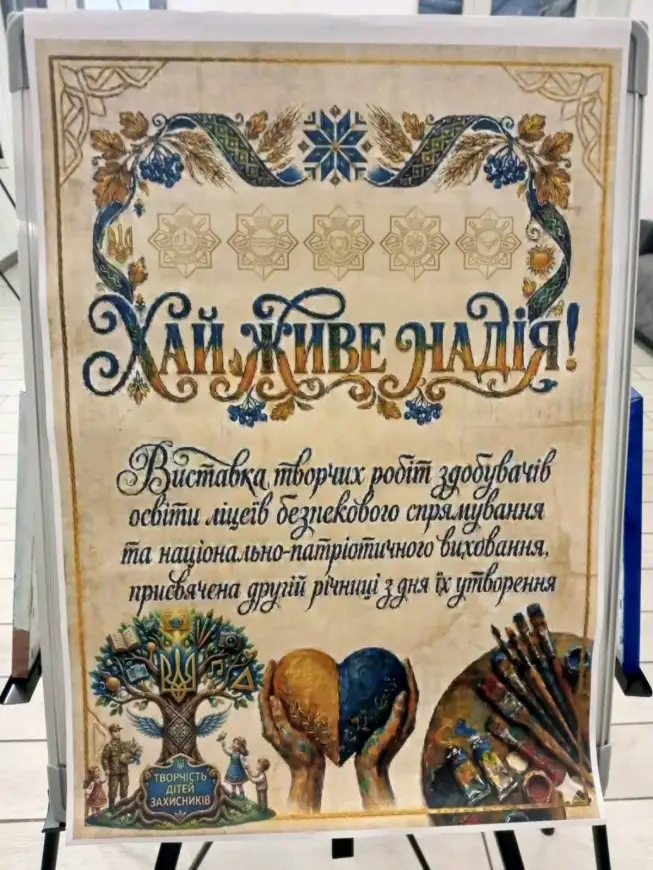 Хай живе надія!
Виставка творчих робіт здобувачів
освіти ліцеїв безпекового спрямування
та національно-патріотичного виховання,
присвячена другій річниці з дня їх утворення
ТВОРЧІСТЬ
ДІТЕЙ
ЗАХИСНИКІВ